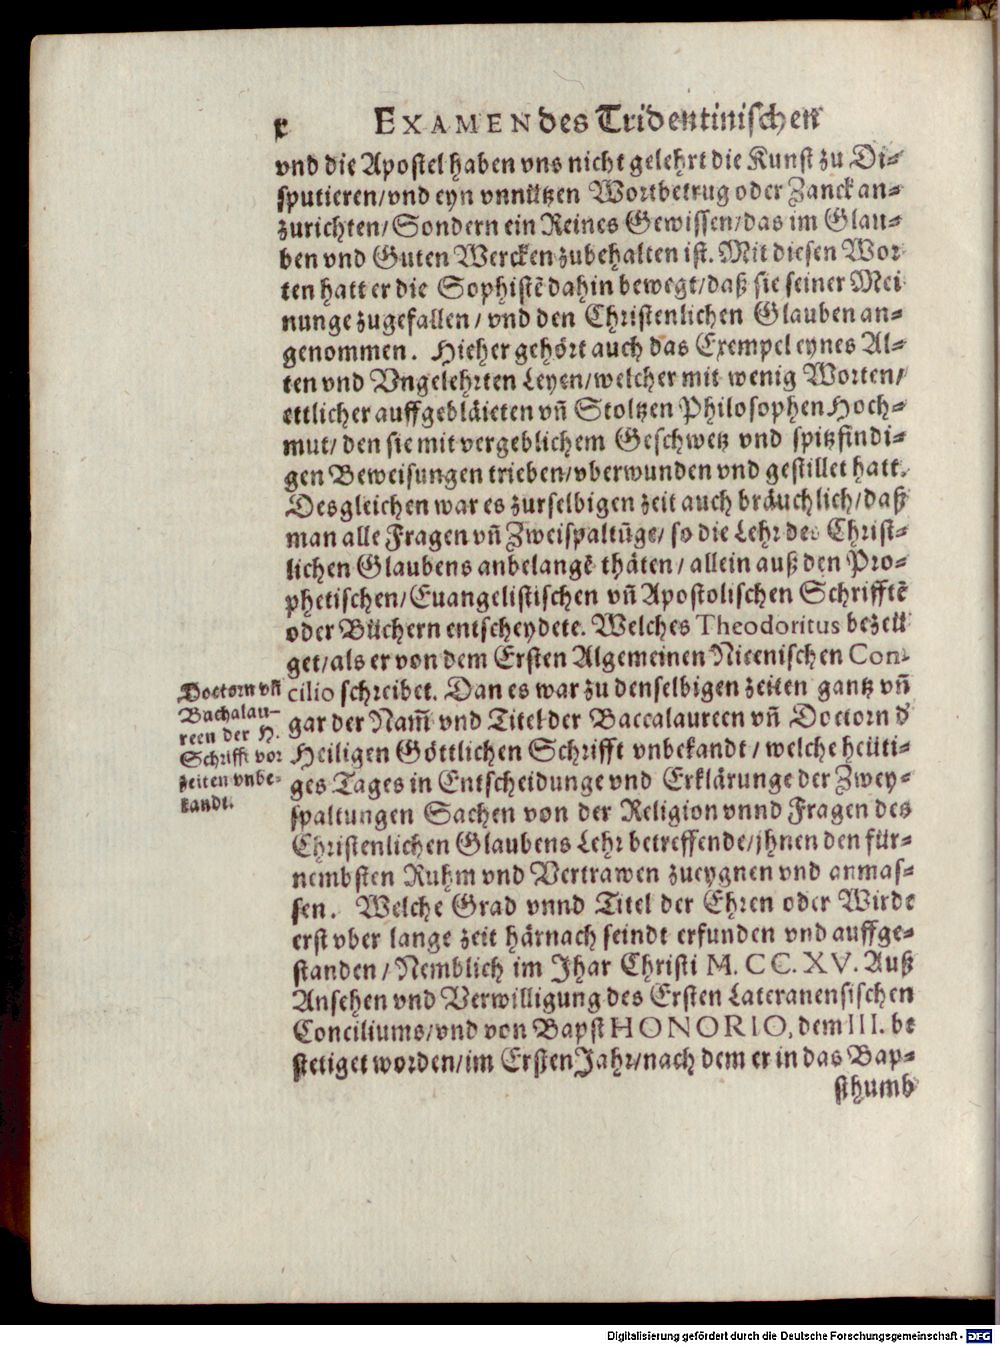 x EXAMEN des Tridentinischen
vnd die Apostel haben vns nicht gelehrt die Kunst zu Di⸗
sputieren/vnd eyn vnnützen Wortbetrug oder Zanck an⸗
zurichten/Sondern ein Reines Gewissen/das im Glau⸗
ben vnd Guten Wercken zubehalten ist. Mit diesen Wor
ten hatt er die Sophistē dahin bewegt/daß sie seiner Mei
nunge zugefallen/ vnd den Christenlichen Glauben an⸗
genommen. Hieher gehört auch das Exempel eynes Al⸗
ten vnd Vngelehrten Leyen/welcher mit wenig Worten/
ettlicher auffgebläieten vn̄ Stoltzen Philosophen Hoch⸗
mut/ den sie mit vergeblichem Geschwetz vnd spitzfindi⸗
gen Beweisungen trieben/vberwunden vnd gestillet hatt.
Desgleichen war es zurselbigen zeit auch bräuchlich/daß
man alle Fragen vn̄ Zweispaltūge/ so die Lehr des Christ⸗
lichen Glaubens anbelangē thäten/ allein auß den Pro⸗
phetischen/Euangelistischen vn̄ Apostolischen Schrifftē
oder Büchern entscheydete. Welches Theodoritus bezeü
get/als er von dem Ersten Algemeinen Nicenischen Con⸗
cilio schreibet. Dan es war zu denselbigen zeiten gantz vn̄
gar der Nam̄ vnd Titel der Baccalaureen vn̄ Doctorn d'
Heiligen Göttlichen Schrifft vnbekandt/ welche heüti⸗
ges Tages in Entscheidunge vnd Erklärunge der Zwey⸗
spaltungen Sachen von der Religion vnnd Fragen des
Christenlichen Glaubens Lehr betreffende/jhnen den für⸗
nembsten Ruhm vnd Vertrawen zueygnen vnd anmas⸗
sen. Welche Grad vnnd Titel der Ehren oder Wirde
erst vber lange zeit härnach seindt erfunden vnd auffge⸗
standen/Nemblich im Jhar Christi M. CC. XV. Auß
Ansehen vnd Verwilligung des Ersten Lateranensischen
Conciliums/vnd von Bapst HONORIO, dem III. be
stetiget worden/im Ersten Jahr/nach dem er in das Bap⸗
sthumb
Doctorn vn̄
Bachalau⸗
reen der H.
Schrifft vor
zeiten vnbe⸗
kandt.
Digitalisierung gefördert durch die Deutsche Forschungsgemeinschaft - DFG